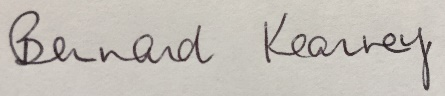 Bernard Kearney